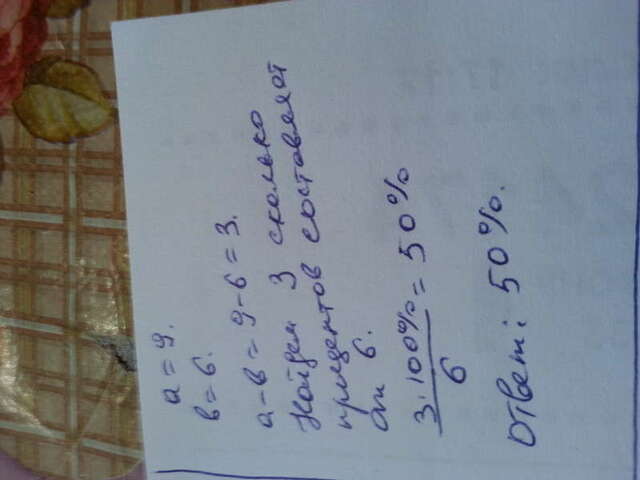 a = 9.
в = 6.
a - в = 9 - 6 = 3.
Найдем 3 сколько
процентов составляет
от 6.
3 · 100% / 6 = 50%
Ответ: 50%.